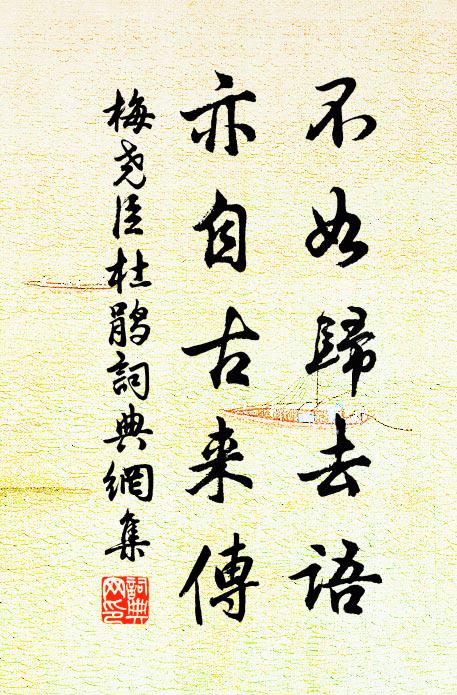 不如歸去語
亦自古来傳
梅尧臣杜鹃詞典網集
詞典网印